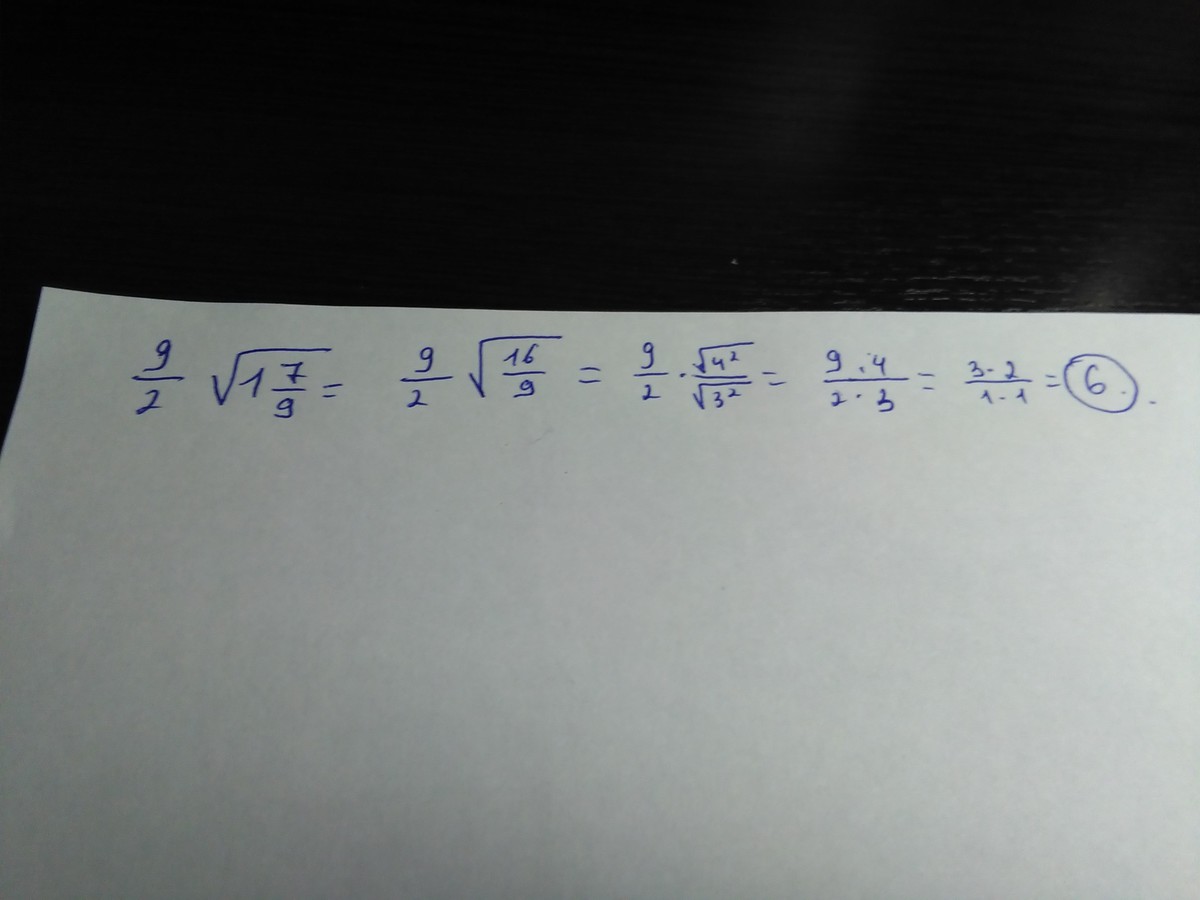 9/2 √(1 7/9) = 9/2 √(16/9) = 9/2 · √4²/√3² = 9·4/2·3 = 3·2/1·1 = 6.